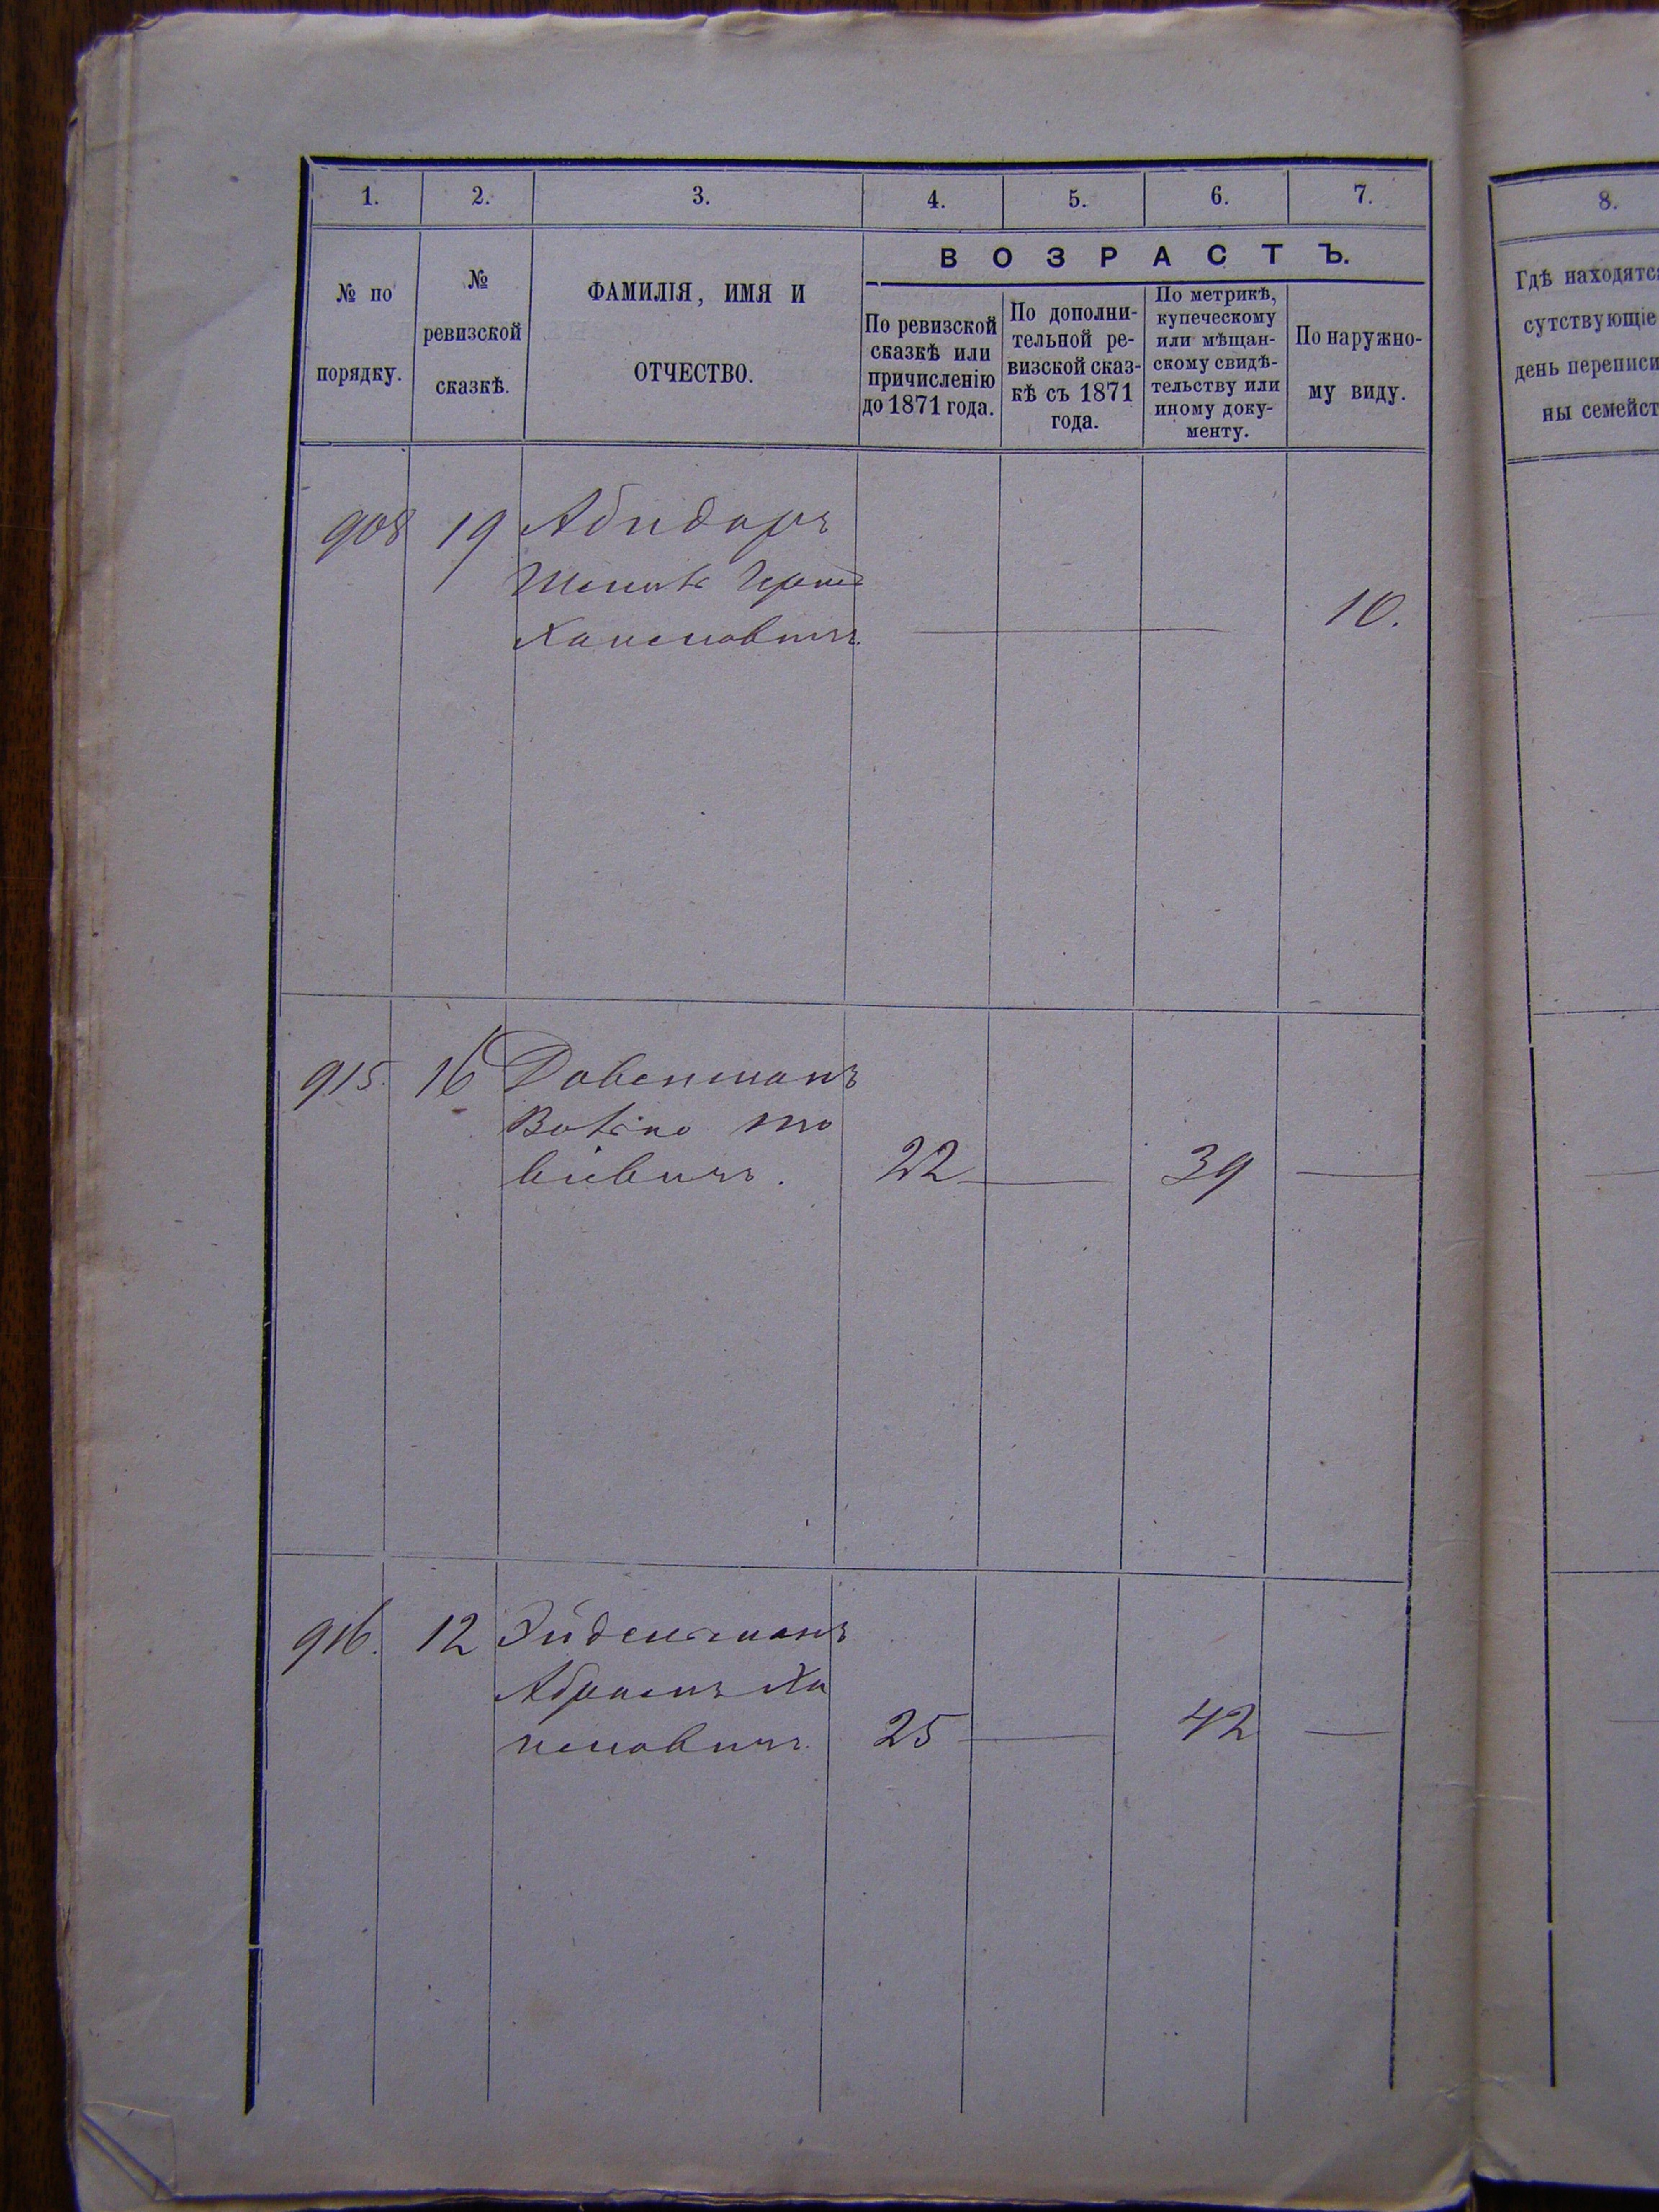 1. 2. 3. 4. 5. 6. 7.
№ по порядку.
№ ревизской сказкѣ.
ФАМИЛІЯ, ИМЯ И
ОТЧЕСТВО.
ВОЗРАСТЪ.
По ревизской
сказкѣ или
причисленію
до 1871 года.
По дополни-
тельной ре-
визской сказ-
кѣ съ 1871
года.
По метрикѣ,
купеческому
или мѣщан-
скому свидѣ-
тельству или
иному доку-
менту.
По наружно-
му виду.
908 19 Абидоръ
Хаимовичъ 10.
915. 16
22 — 39 —
916. 12 Эйдельманъ
Абрамъ Ха
имовичъ 25 — 42 —
8.
Гдѣ находятся
сутствующіе
день переписи
ны семейст